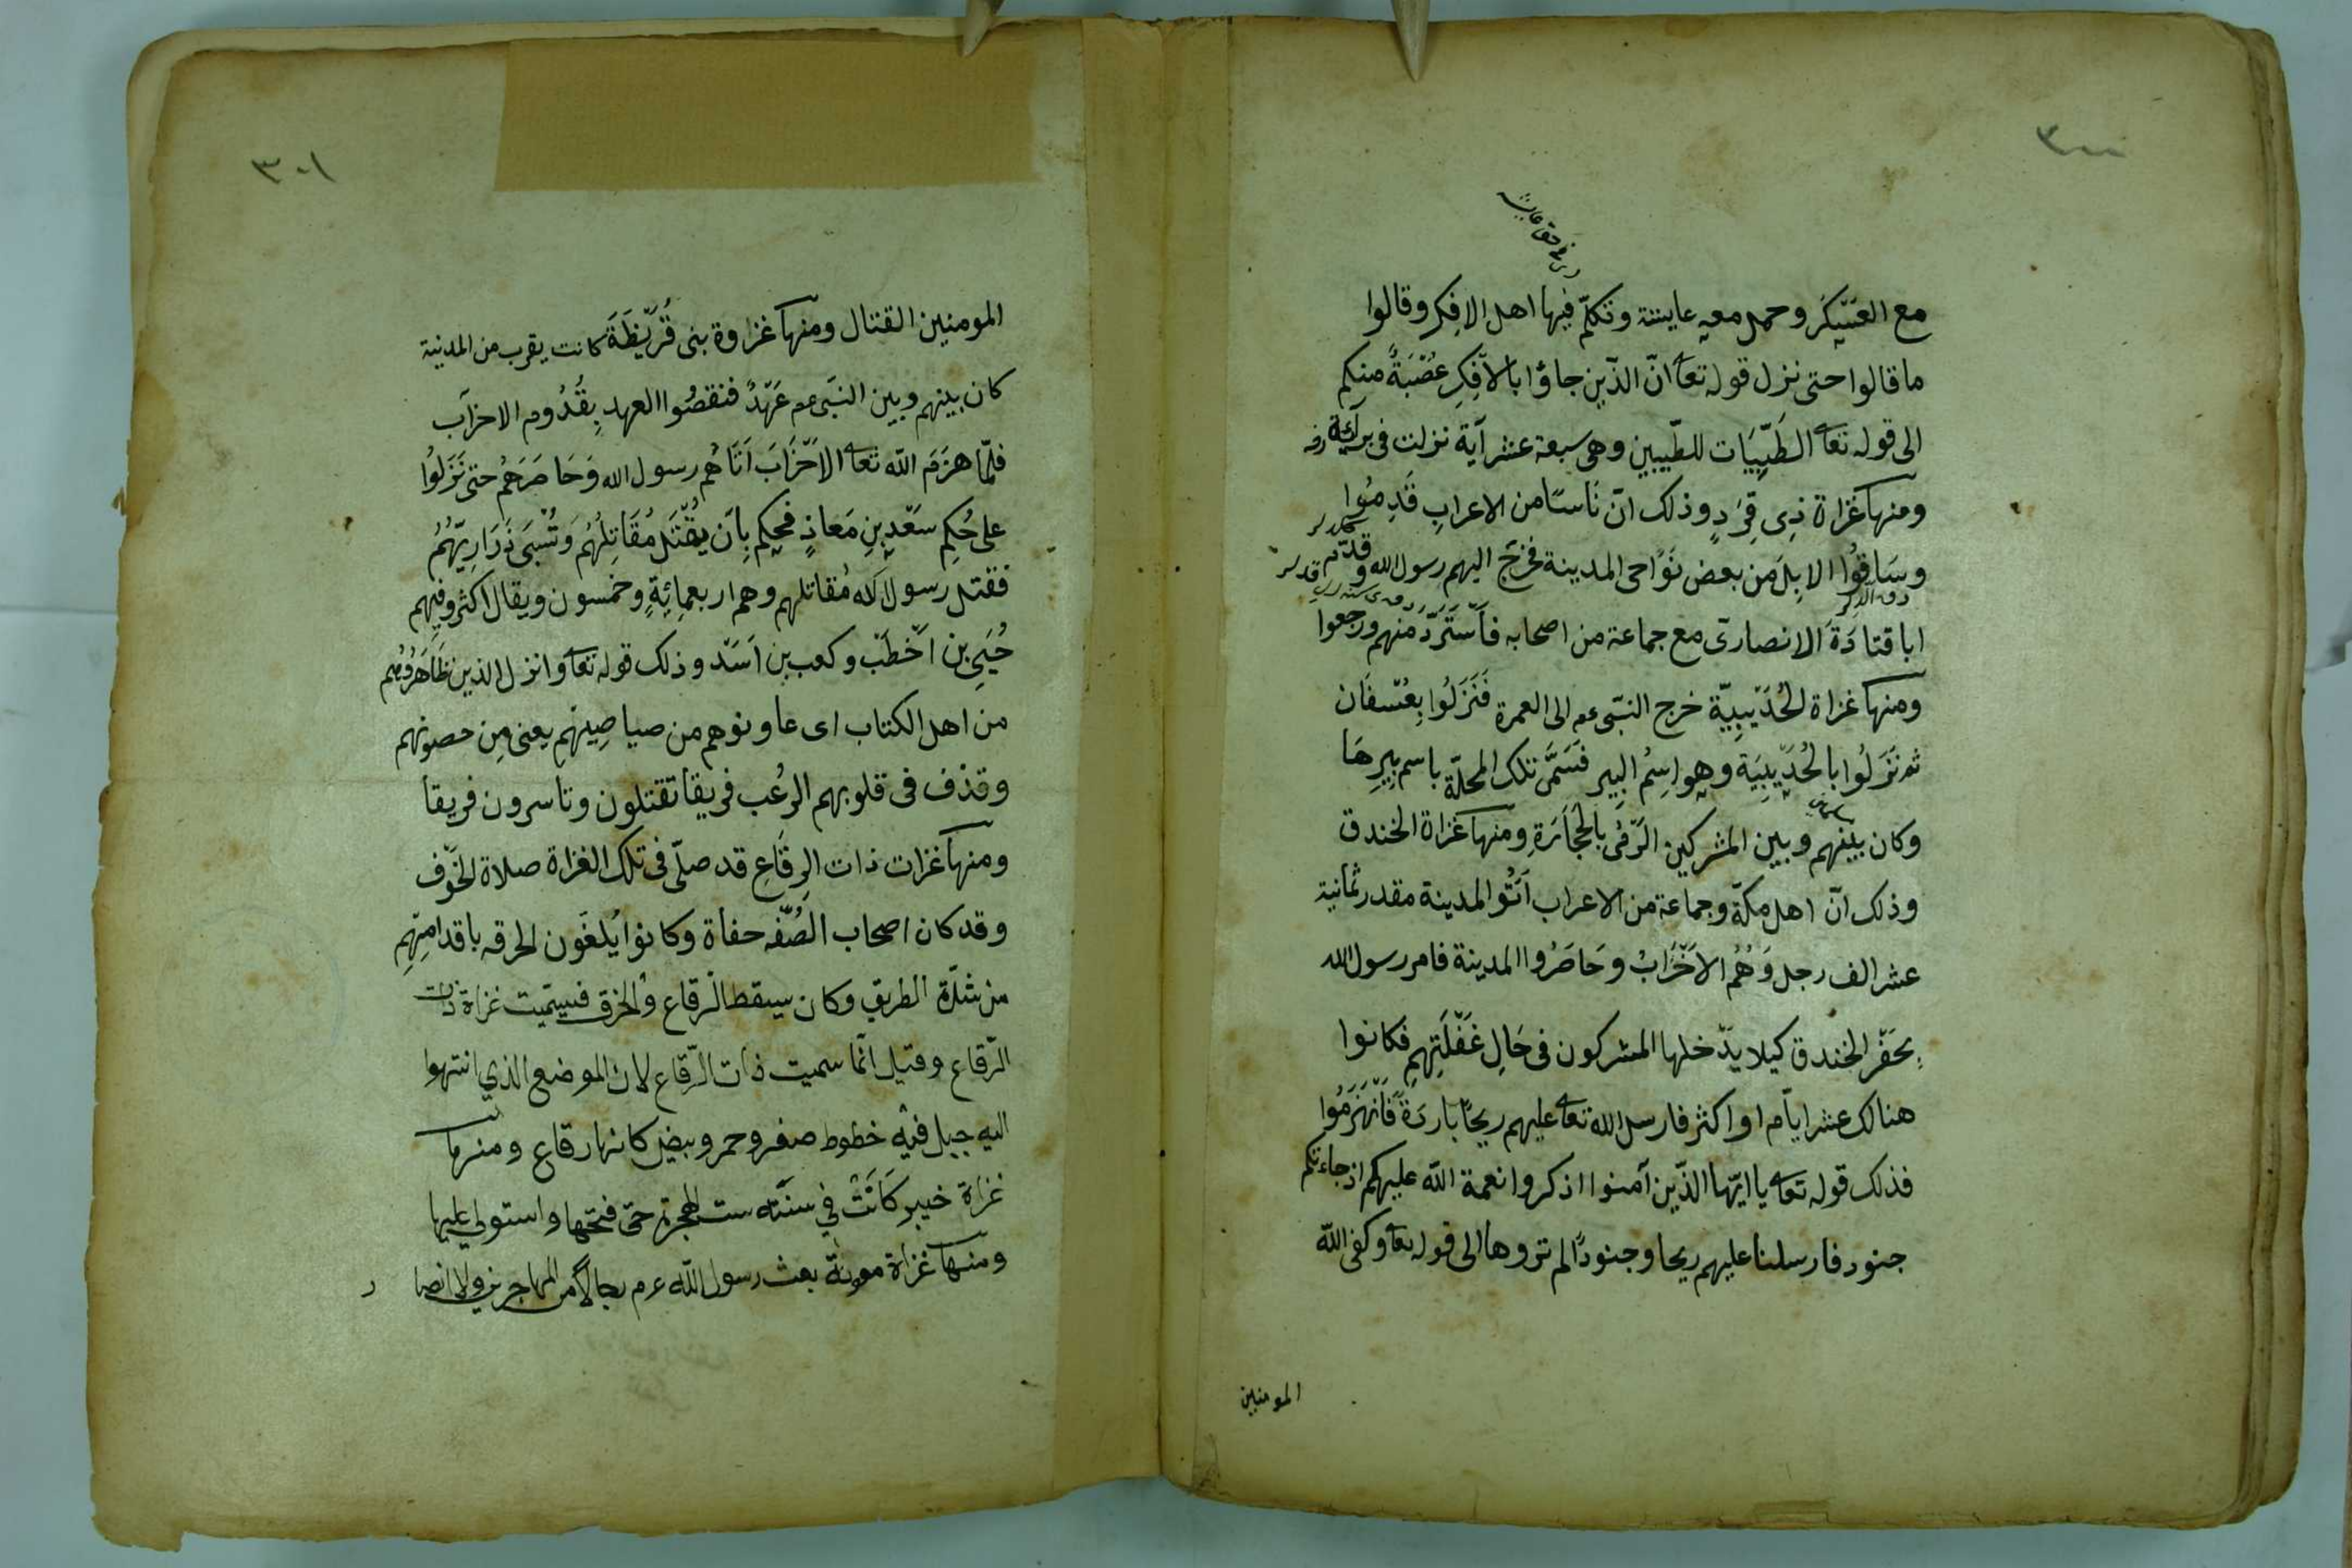 ٣٠٠
مع العَسْكَر وحمل معه عايشة وتكلّم فيها اهل الافك وقالوا
ما قالوا حتى نزل قوله تعا انّ الذّين جاؤا بالاِفْكِ عُصْبَةٌ منكم
الى قوله تعا الطَيِّبَات للطّيبين وهى سبعة عشر آية نزلت فى برآئة
ومنها غزاة ذِى قِرَدٍ وذلك انّ نَاسًا من الاعرابِ قَدِمُوا
وسَاقُوا الاِبِلَ من بعض نَوَاحى المدينة فخرَج اليهم رسول الله وقدّم
ابا قتادَةَ الانصارىّ مع جماعة من اصحابه فاَسْتَرَدَّ منهم ورجعوا
ومنها غزاة الحُدَيْبِيّة خرج النبّى عم الى العمرة فَنَزَلُوا بِعُسْفَان
ثم نَزَلُوا بالحُدَيْبِيَة وهو اسِمُ البِير فَسَمَّى تلك المحلّة باسم بِيرِهَا
وكان بينهم وبين المشركين الرَّمْىُ بالحْجَارَةِ ومنها غزاة الخندق
وذلك انّ اهل مكّة وجماعة من الاعراب اَتَوُا المدينة مقدر ثمانية
عشر الف رجل وَهُمُ الاَحْزَابُ وحَاصَرُوا المدينة فامر رسول الله
بِحَفْرِ الخندق كيلا يدْخلها المشركون فى حَالِ غَفْلَتِهِم فكانوا
هنالك عشر ايّام او اكثر فارسل الله تعا عليهم ريحًا باردَةً فَانْهَزَمُوا
فذلك قوله تعا يا ايّها الذّين آمنوا اذكروا نعمة الله عليكم اذ جاءتكم
جنود فارسلنا عليهم ريحا وجنودًا لم تروها الى قوله تعا وكفى الله
المومنين
٣٠١
المومنين القتال ومنها غزاوة بنى قُرَيْظَةَ كانت يقرب من المدنية
كان بينهم وبين النبَى عم عَهْدٌ فنقضُوا العهد بِقُدُوم الاحزاب
فلمّا هزَمَ الله تعا الاَحْزَابَ اَتَاهُم رسول الله وَحَاصَرَهُم حتى نَزَلُوا
على حُكِم سَعْدِ بنِ مَعاذٍ فحَكم بِاَن يُقْتَل مُقَاتِلُهُم وَتُسْبَى ذَرَارِيّهُم
فقتل رسول الله مُقاتلهم وهم اربعمِائِةٍ وخمسون ويقال اكثر وفيهم
حُيَىِ بن اَخْطَبَ وكعب بن اَسَدْ وذلك قوله تعا وانزل الذين ظَاهَرُوهُم
من اهل الكتاب اى عاونوهم من صياصِيهم يعنى مِن حصونهم
وقذف فى قلوبهم الرُعْب فريقا تقتلون وتاسرون فريقا
ومنها غزات ذات الرِقَاعِ قد صلّى فى تلك الغزاة صلاة الخَوْف
وقد كان اصحاب الصُفّه حفاة وكانوا يُلغَون الحرقه باقدامِهِم
من شدّة الطريق وكان سيقط الرقاع والخرق فسمّيت غزاة ذات
الرّقاع وقيل انّما سميت ذات الرّقاع لان الموضع الذي انتهوا
اليه جبل فيه خطوط صفر وحمر وبيض كانها رقاع ومنها
غزاة خيبر كَانَتْ في سنَته ست للهجرة حتى فتحها واستولى عليها
ومنها غزاة موتة بعث رسول الله عم رجالاً من المهاجرين والانصار